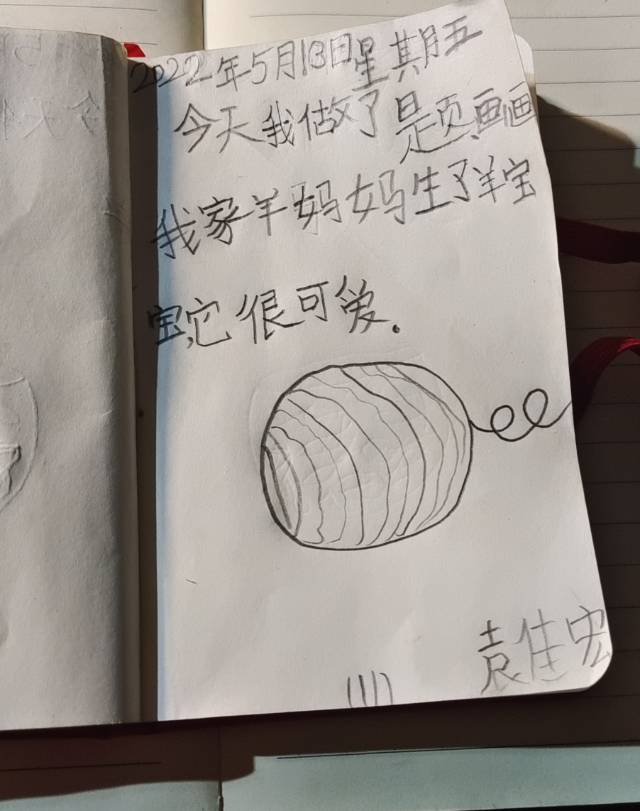 2022年5月13日星期五
今天我做了是页,画画
我家羊妈妈生了羊宝
宝,它很可爱.
袁佳宏
(11)